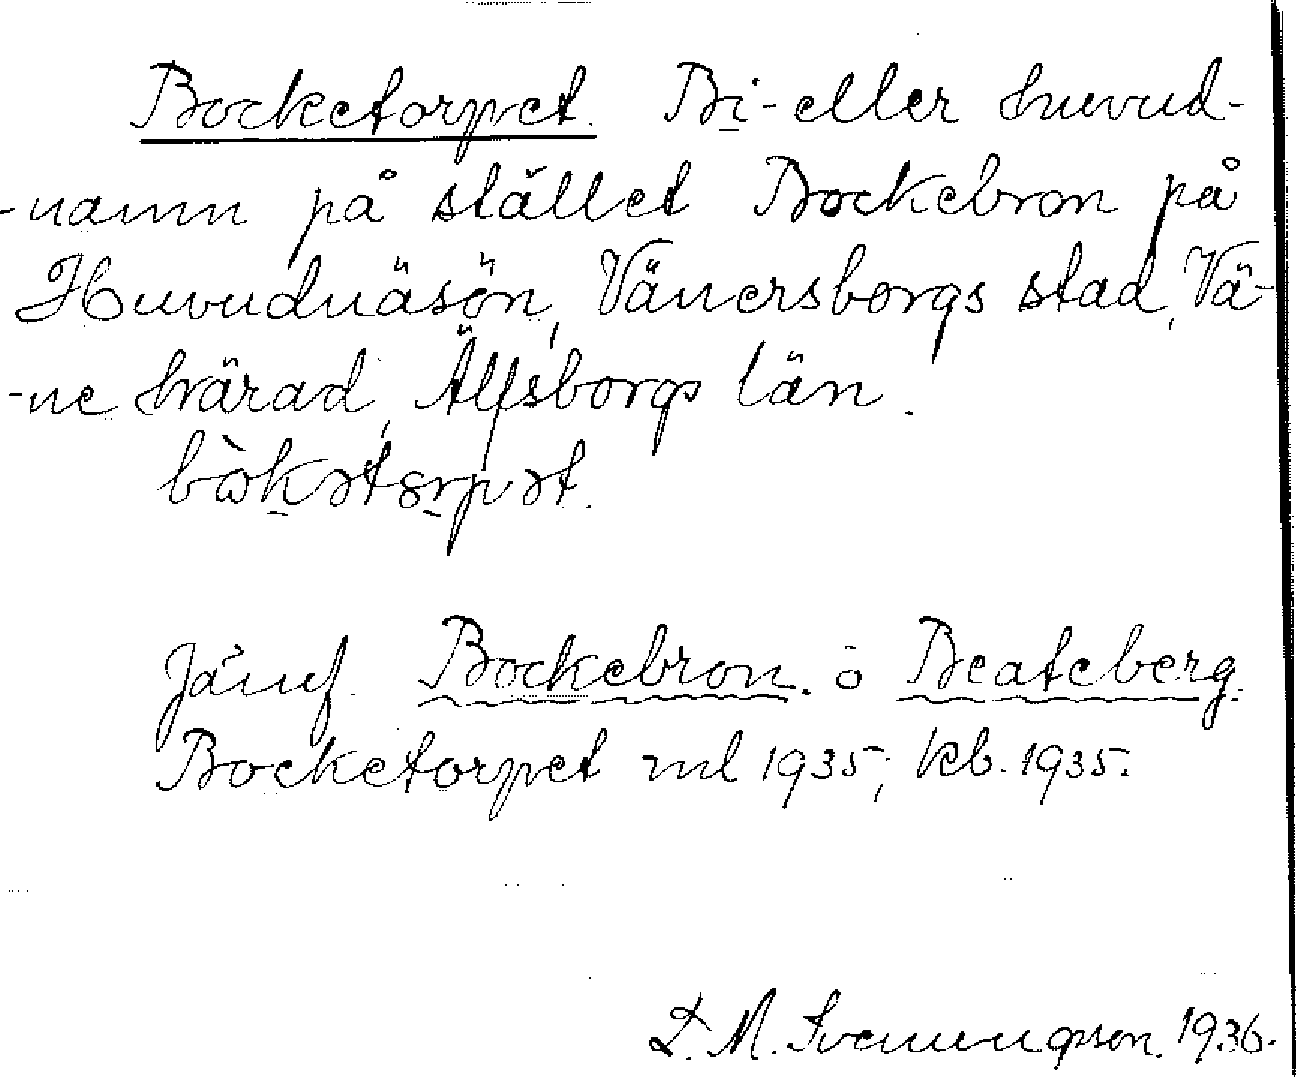 Bocketorpet. Bi- eller huvud-
-namn på stället Bockebron på
Huvudnäsön, Vänersborgs stad, Vä-
-ne härad, Älfsborgs län.
bòkətɞrpət.
Jämf. Bockebron. o Beateberg.
Bocketorpet ml 1935; kb. 1935.
D. M. Svenungsson. 1936.